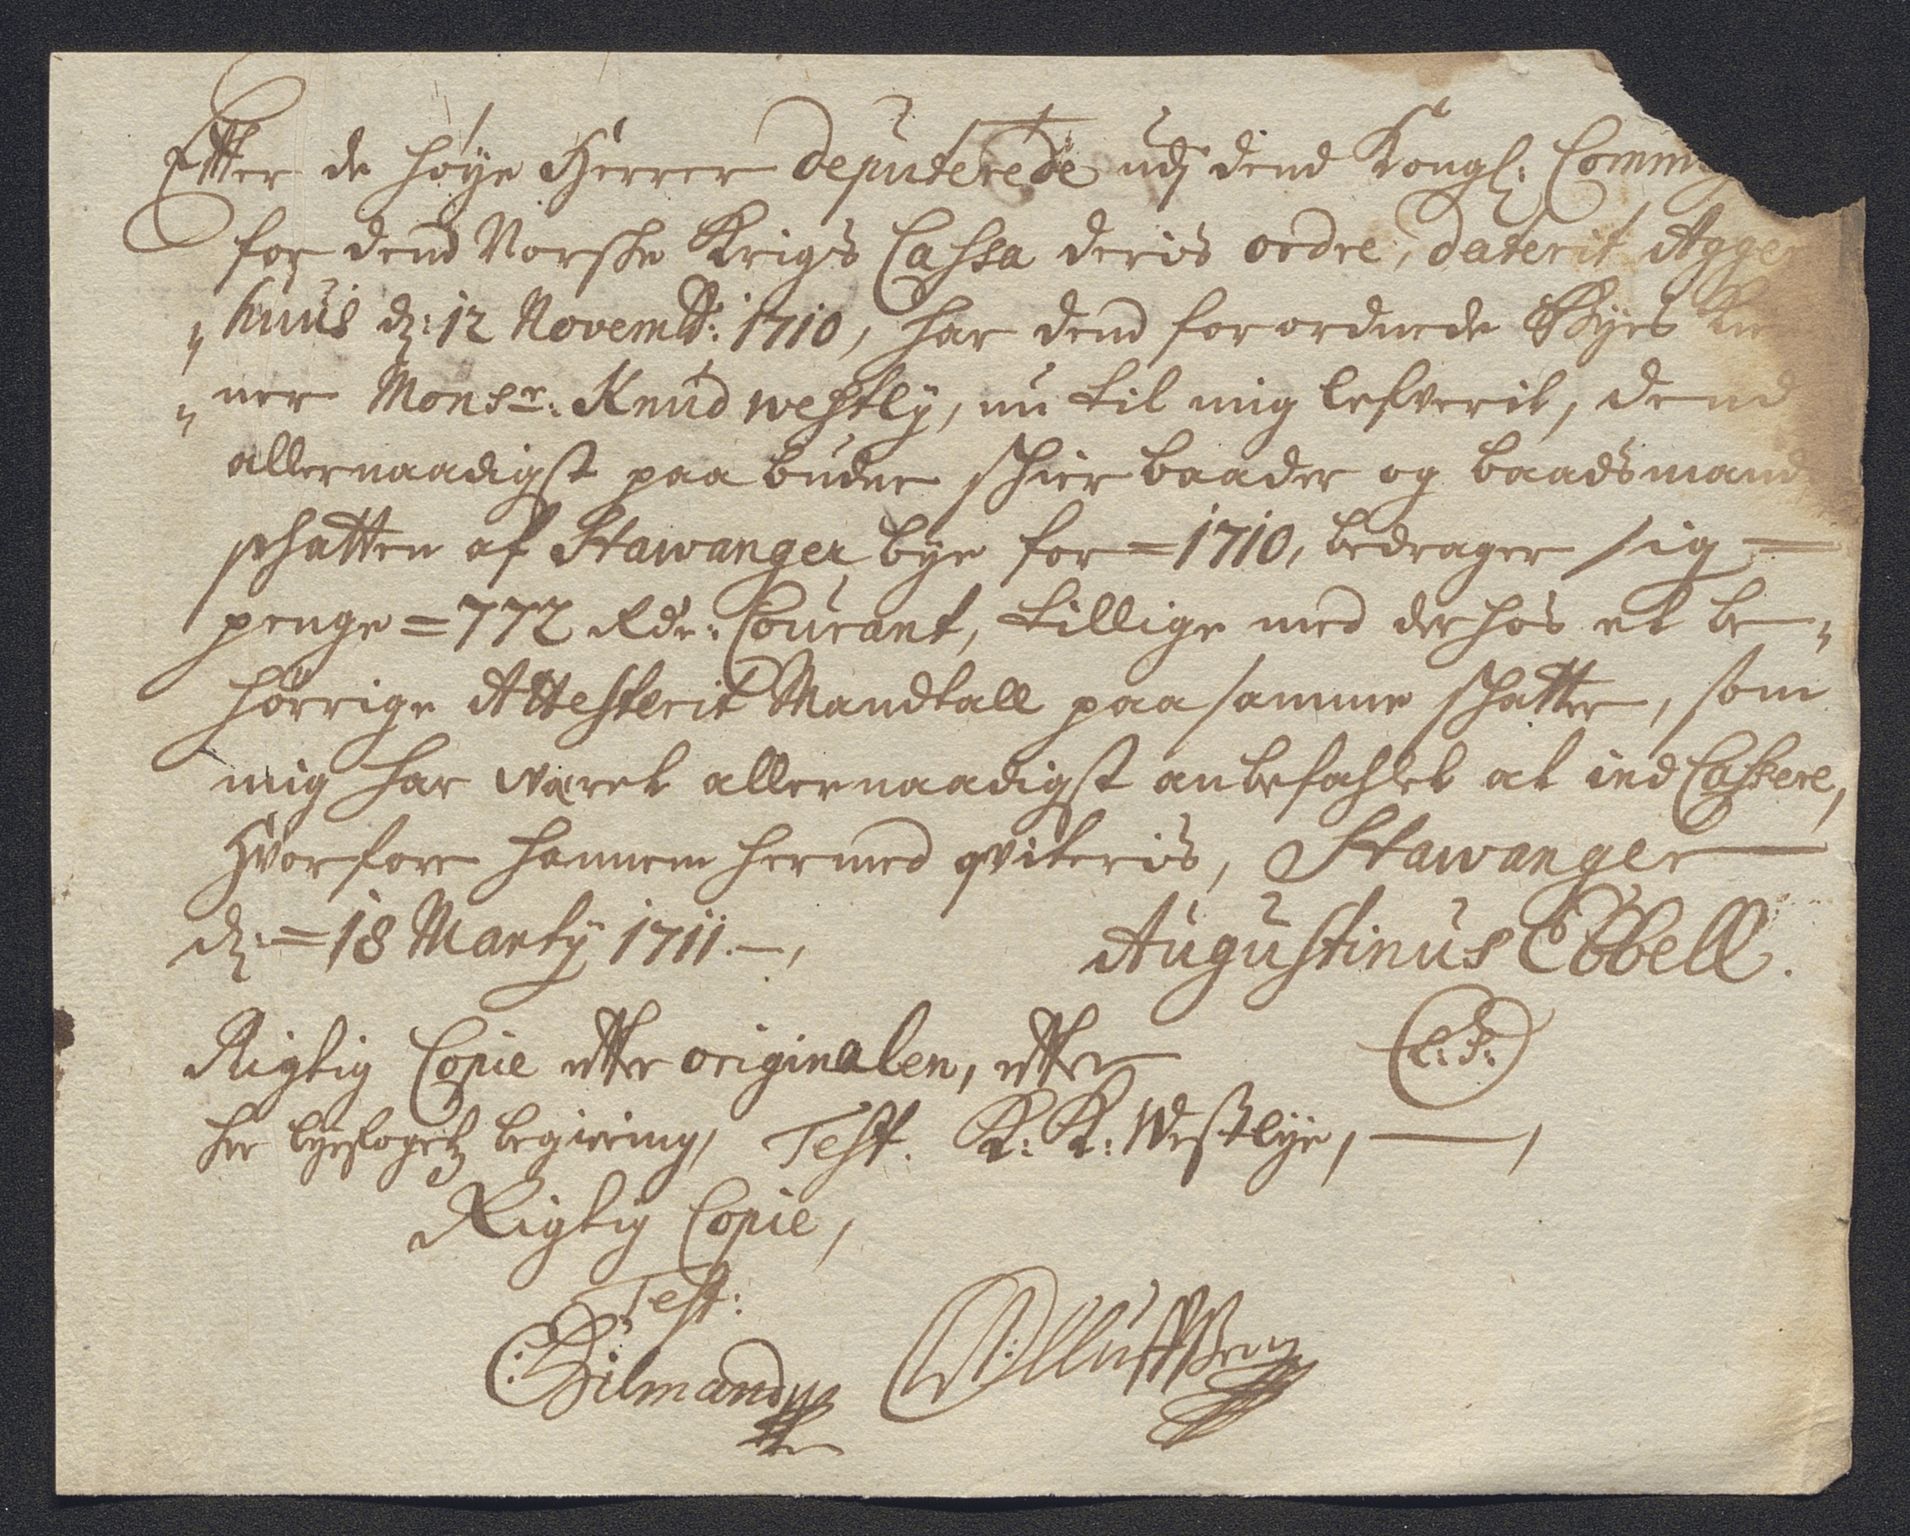 Effter de høye Herrer deputerede udj dend Kongl: Comm
for dend Norske Krigs Cassa deris ordre, daterit Agger
huus d: 12 Novembr: 1710, har dend forordnede Byes
ner Monsr: Knud westly, nu til mig lefverit, dend
allernaadigst paabudne schierbaader og baadsmands
schatten af Stawanger bye for = 1710, bedrager sig =
penge = 772 Rdr: Courant, tillige med derhos et be=
hörrige Attesterit Mandtall paa samme schatter, som
mig har været allernaadigst anbefahlet at ind Cassere,
Hvorfore hannem hermed qviteris, Stawanger
d: = 18 Marty 1711 —,
Augustinus Ebbell.
Rigtig Copie effter originalen, effter
(L: S:)
her byefogetz begiering, Test. K: K: Westlye, —,
Rigtig Copie,
Test: